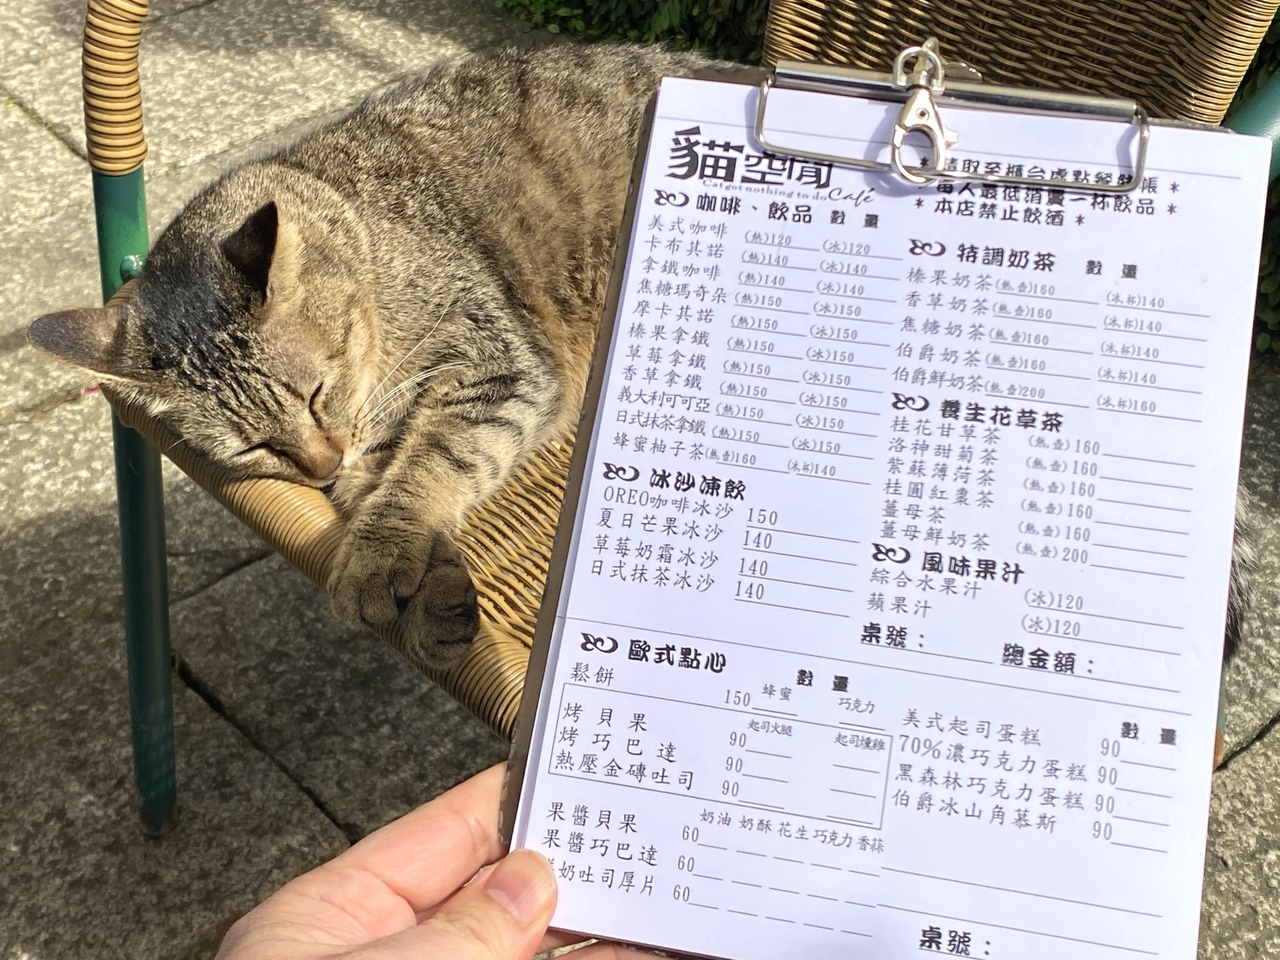 貓空閒
Cat got nothing to do Café
取至櫃台處點餐結帳 *
每人最低消費一杯飲品 *
* 本店禁止飲酒 *
咖啡、飲品 數 量
美式咖啡 (熱)120 (冰)120
卡布其諾 (熱)140 (冰)140
拿鐵咖啡 (熱)140 (冰)140
焦糖瑪奇朵 (熱)150 (冰)150
摩卡其諾 (熱)150 (冰)150
榛果拿鐵 (熱)150 (冰)150
草莓拿鐵 (熱)150 (冰)150
香草拿鐵 (熱)150 (冰)150
義大利可可亞 (熱)150 (冰)150
日式抹茶拿鐵 (熱)150 (冰)150
蜂蜜柚子茶 (熱.壺)160 (冰.杯)140
冰沙凍飲
OREO咖啡冰沙 150
夏日芒果冰沙 140
草莓奶霜冰沙 140
日式抹茶冰沙 140
特調奶茶 數 量
榛果奶茶 (熱.壺)160 (冰.杯)140
香草奶茶 (熱.壺)160 (冰.杯)140
焦糖奶茶 (熱.壺)160 (冰.杯)140
伯爵奶茶 (熱.壺)160 (冰.杯)140
伯爵鮮奶茶 (熱.壺)200 (冰.杯)160
養生花草茶
桂花甘草茶 (熱.壺)160
洛神甜菊茶 (熱.壺)160
紫蘇薄荷茶 (熱.壺)160
桂圓紅棗茶 (熱.壺)160
薑母茶 (熱.壺)160
薑母鮮奶茶 (熱.壺)200
風味果汁
綜合水果汁 (冰)120
蘋果汁 (冰)120
桌號： 總金額：
歐式點心 數 量
鬆餅 150 蜂蜜 巧克力
起司火腿 起司燻雞
烤貝果 90
烤巧巴達 90
熱壓金磚吐司 90
奶油 奶酥 花生 巧克力 香蒜
果醬貝果 60
果醬巧巴達 60
奶吐司厚片 60
數 量
美式起司蛋糕 90
70%濃巧克力蛋糕 90
黑森林巧克力蛋糕 90
伯爵冰山角慕斯 90
桌號：